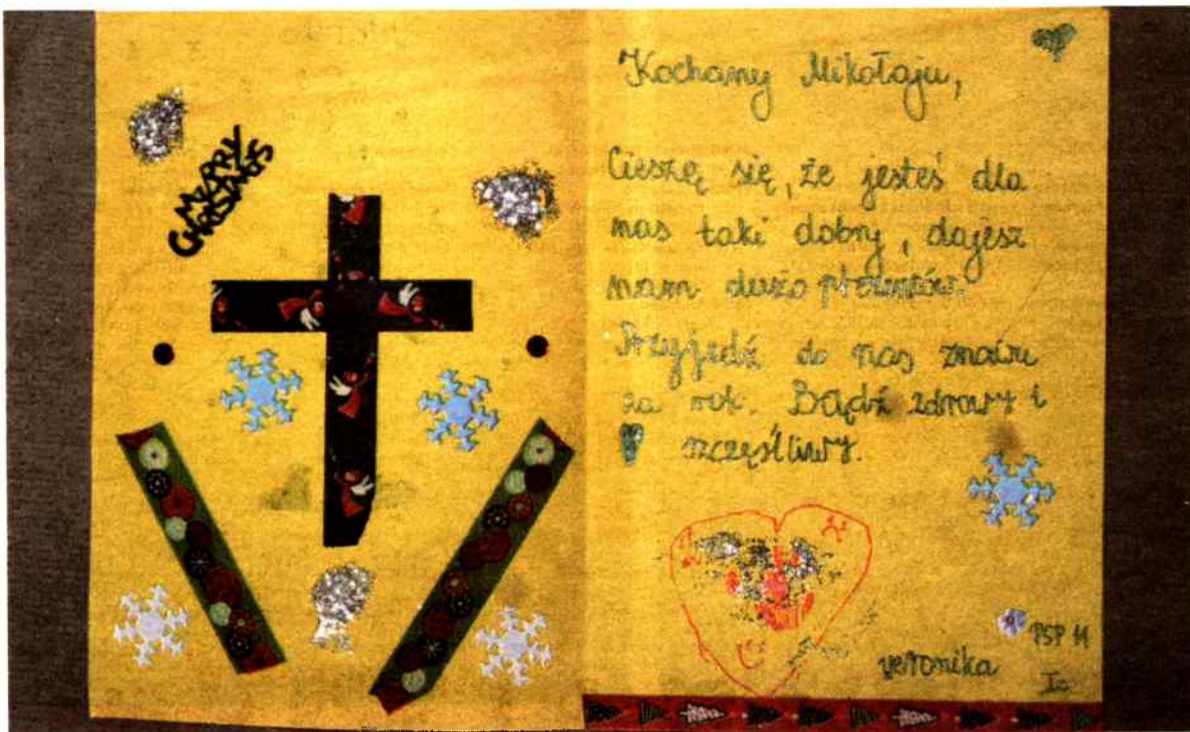 MERRY
CHRISTMAS
Kochany Mikołaju,
Cieszę się, że jesteś dla
nas taki dobry, dajesz
nam dużo prezentów.
Przyjedź do nas znowu
za rok. Bądź zdrowy i
szczęśliwy.
weronika
PSP 11
Ic